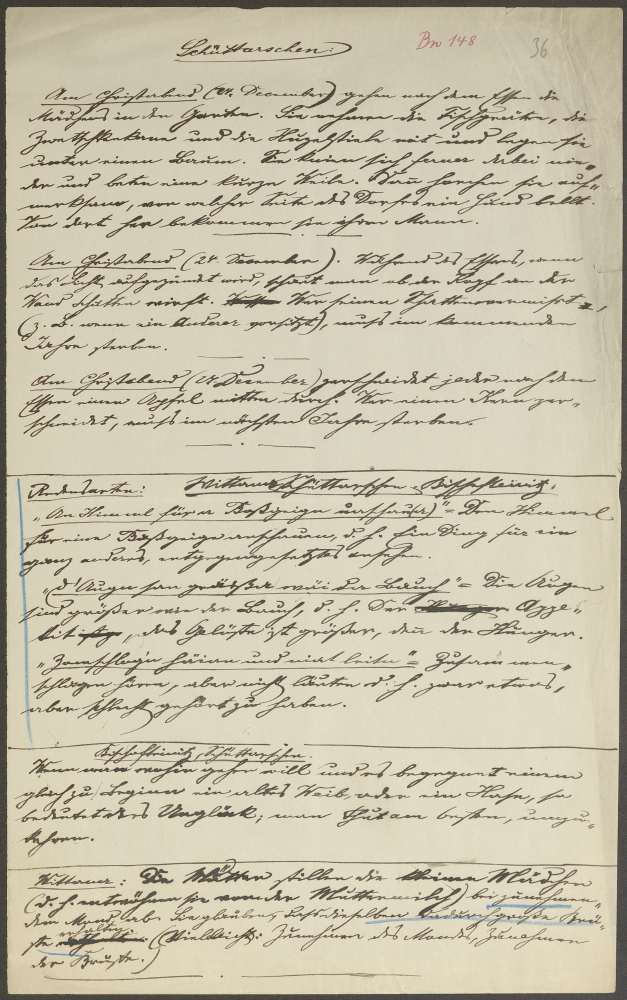 Schüttarschen:
Bn 148
36
Am Christabend (24. December) gehen nach dem Essen die
Mädchen in den Garten. Sie nehmen die Fischgräten, die
Zwetschkenkerne und die Kuzelstiele mit und legen sie
unter einen Baum. Sie knien sich ferner dabei nie-
der und beten eine kurze Weile. Dann horchen sie auf-
merksam, von welcher Seite des Dorfes ein Hund bellt.
Von dort her bekommen sie ihren Mann.
Am Christabend (24. December). Während des Essens, wenn
das Licht angezündet wird, schaut man ob der Kopf an der
Wand Schatten wirft. Wer seinen Schatten vermisst,
(z. B. wenn ein Anderer vorsitzt), muß im kommenden
Jahre sterben.
Am Christabend (24. December) zerschneidet jeder nach dem
Essen einen Apfel mitten durch. Wer einen Kern zer-
schneidet, muß im nächsten Jahre sterben.
Redensarten: Wittana, Schüttarschen, Bischofteinitz.
"An Himml für a Baßgeign anschaua" = Den Himmel
für eine Baßgeige anschauen, d. h. Ein Ding für ein
ganz anderes, entgegengesetztes ansehen.
"d' Augn san gräißer wäi der Bauch" = Die Augen
sind größer wie der Bauch, d. h. Der Appe-
tit, das Gelüste ist größer, denn der Hunger.
"Zamschlogn häian und niat leitn" = Zusammen-
schlagen hören, aber nicht läuten d. h. zwar etwas,
aber schlecht gehört zu haben.
Bischofteinitz, Schüttarschen.
Wenn man wohin gehen will und es begegnet einem
gleich zu Beginn ein altes Weib oder ein Hase, so
bedeutet dies Unglück; man thut am besten, umzu-
kehren.
Wittana: Die Mütter stillen die kleinen Mädchen
(d. h. entwöhnen sie von der Muttermilch) bei zunehmen-
dem Mond ab. Sie glauben, daß dieselben dadurch große Brü-
ste erhalten. (Vielleicht: Zunehmen des Mondes, Zunehmen
der Brüste.)